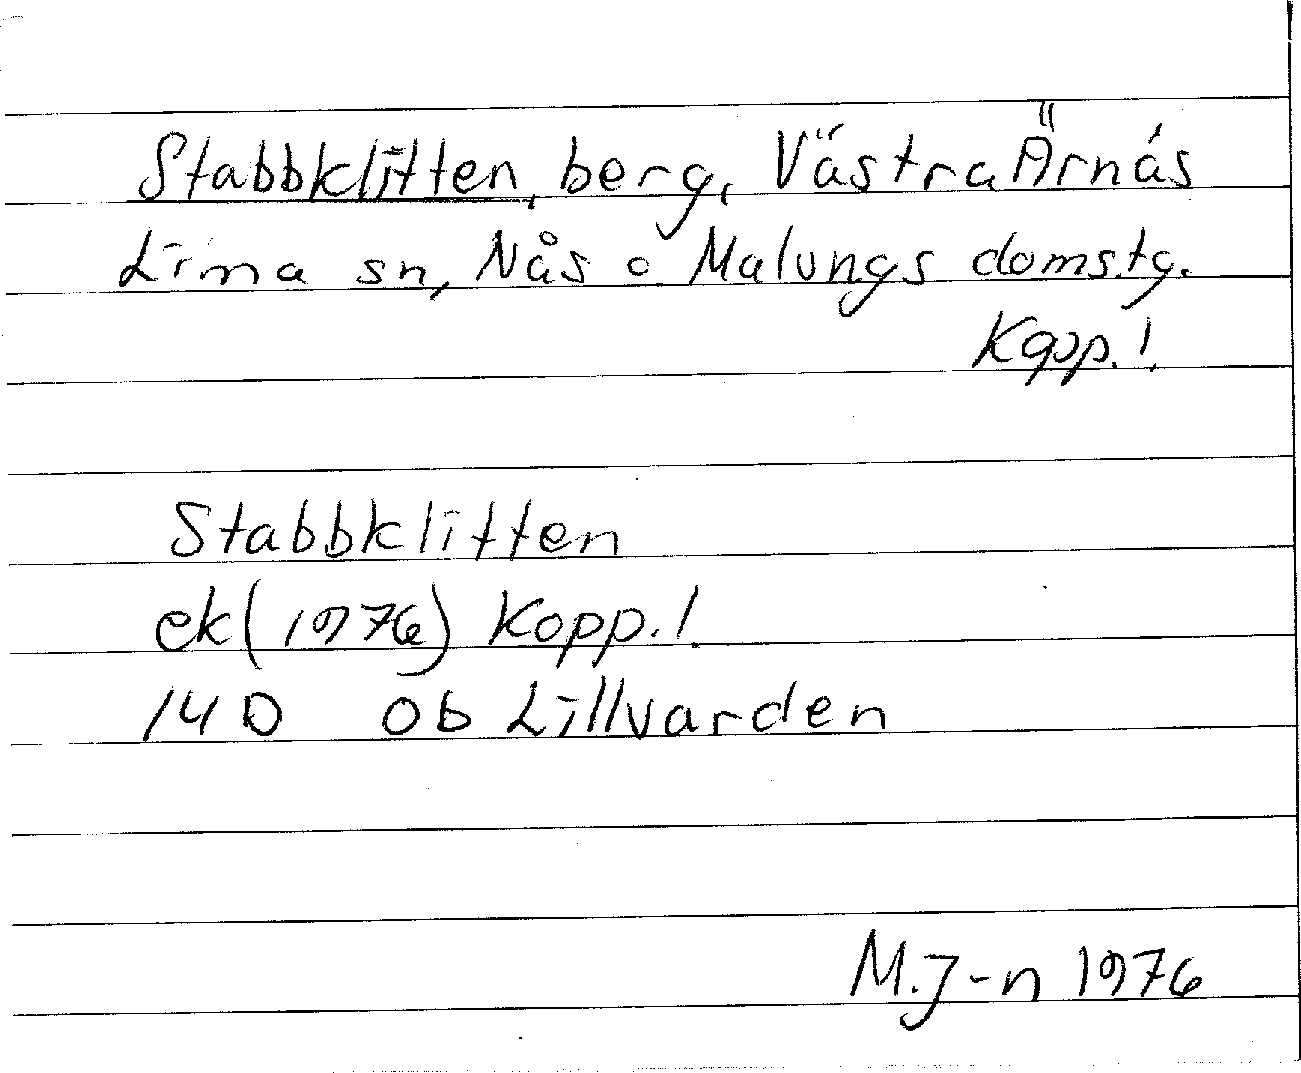 Stabbklitten, berg, Västra Ärnäs
Lima sn, Nås o Malungs domstg.
Kopp. l.
Stabbklitten
ek (1976) Kopp. l.
14 D ob Lillvarden
M. J-n 1976